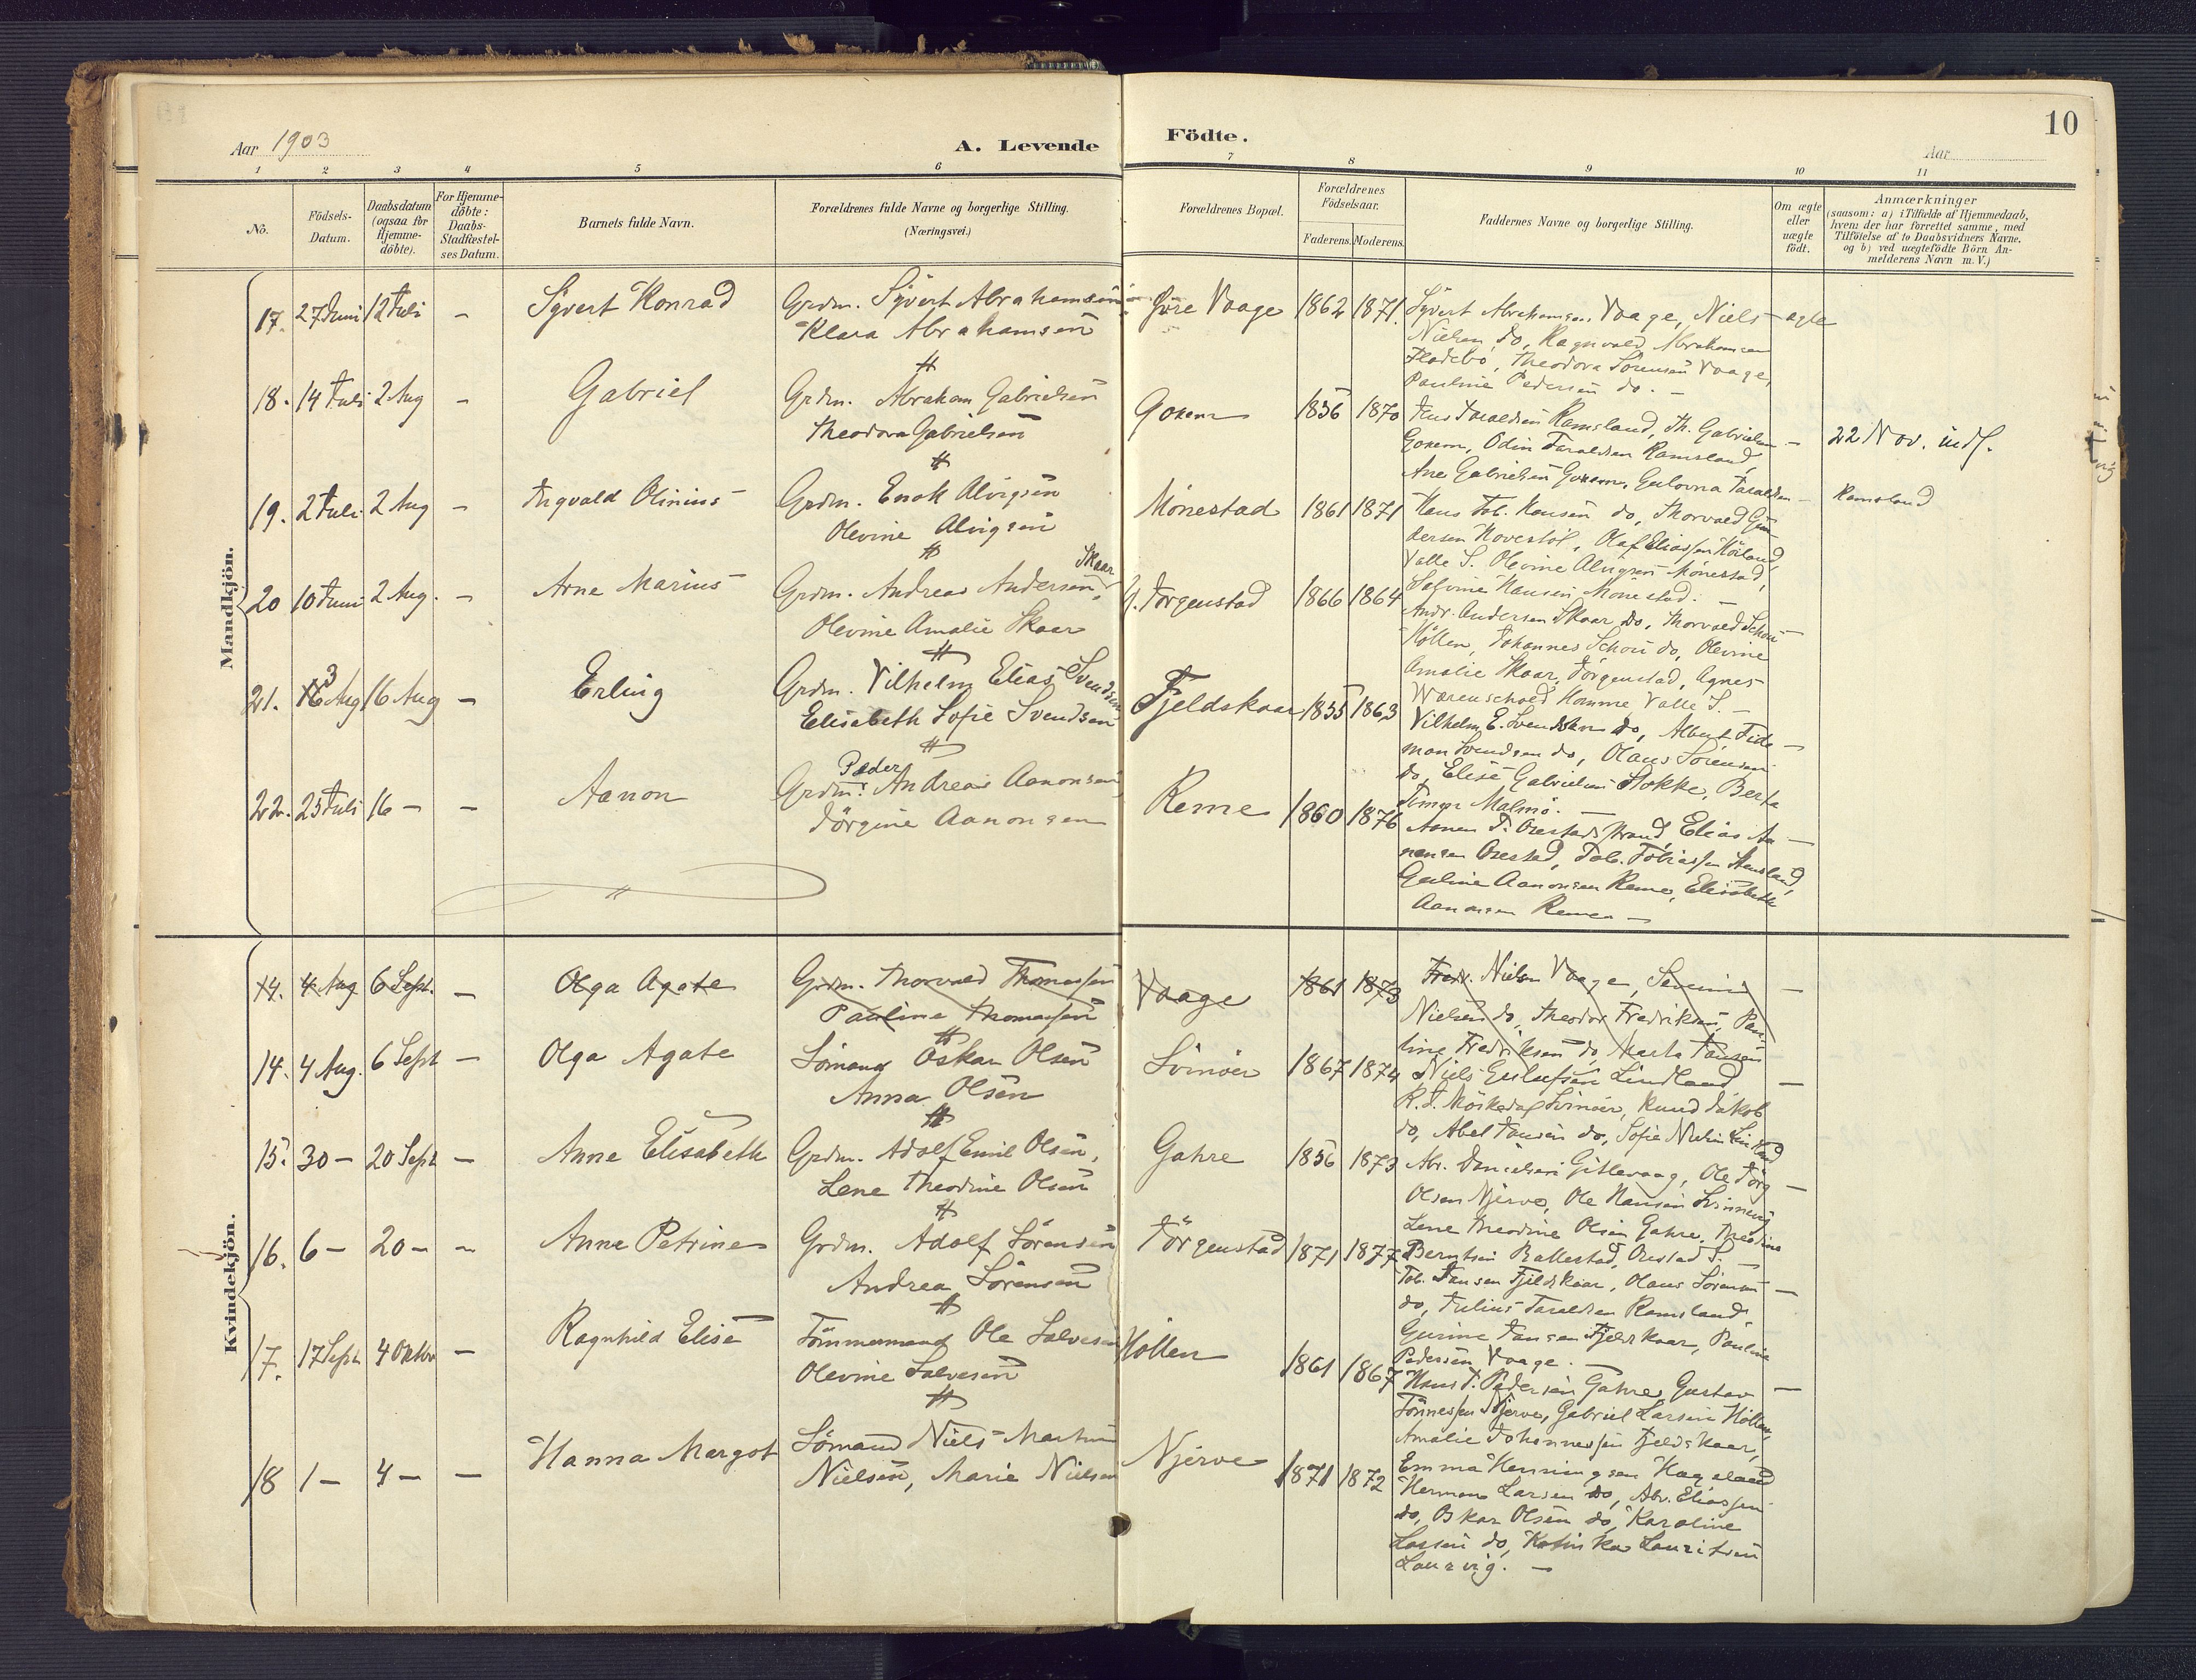 10
Aar 1903
A. Levende Födte.
Aar
1 2 3 4 5 6 7 8 9 10 11
Nö.
Födsels-Datum.
Daabsdatum (ogsaa for Hjemmedöbte).
For Hjemmedöbte: Daabs-Stadfæstelses Datum.
Barnets fulde Navn.
Forældrenes fulde Navne og borgerlige Stilling. (Næringsvei.)
Forældrenes Bopæl.
Forældrenes Födselsaar.
Faderens. Moderens.
Faddernes Navne og borgerlige Stilling.
Om ægte eller uægte födt.
Anmærkninger
(saasom: a) i Tilfælde af Hjemmedaab, hvem der har forrettet samme, med Tilföielse af to Daabsvidners Navne. og b) ved uægtefödte Börn Anmelderens Navn m. V.)
Mandkjön.
17. 27 Juni 12 Juli - Syvert Konrad Grdm. Syvert Abrahamsen Klara Abrahamsen Vaage 1862 1871. Syvert Abrahamsen Vaage, Niels ægte
Nielsen do, Ragnvald Abrahamsen
Fladebö, Theodora Sörensen Vaage,
Pauline Pedersen do. -
18. 14 Juli 2 Aug - Gabriel Grdm. Abraham Gabrielsen Theodora Gabrielsen 1856 1870 Taraldsen Ramsland, Th. Gabrielsen - 22 Nov. indf.
Odin Taraldsen Ramsland,
Ane Gabrielsen Taraldsen - Ramsland
19. 2 Juli 2 Aug - Ingvald Olinius Grdm. Enok Alvigsen Olevine Alvigsen Mönestad 1861 1871 Hans Tob. Hansen do, Thorvald Gun-
dersen Hovestöl, Olaf Eliassen Höiland,
Valle S. Olevine Alvigsen Mönestad,
Hansen Mönestad. -
20 10 Juni 2 Aug. - Arne Marius Grdm. Andreas Andersen Skaar, Olevine Amalie Skaar Jörgenstad 1866 1864 Andr. Andersen Skaar do, Thorvald Schou -
Höllen, Johannes Schou do, Olevine
Amalie Skaar, Jörgenstad, Agnes
Wærenschold Homme Valle S. -
21. 13 Aug 16 Aug - Erling Grdm. Vilhelm Elias Svendsen Elisabeth Sofie Svendsen Fjeldskaar 1855 1863 Vilhelm E. Svendsen do, Albert Tide-
man Svendsen do, Olaus Sörensen
do, Elise Gabrielsen Stokke, Berta
Malmö. -
22. 25 Juli 16 - - Aanon Grdm. Peder Andreas Aanonsen, Jörgine Aanonsen Reme 1860 1876 Strand, Elias Aa-
nensen Orestad, Tob. Tobiassen
Guline Aanonsen Reme, Elisabeth
Aanonsen Reme -
Kvindekjön.
14. 4 Aug 6 Sept. - Olga Agate Grdm. Thorvald Thomassen Pauline Thomassen Vaage 1861 1873 Fredr. Nielsen Vaage, Severine -
Nielsen do, Theodor Fredriksen, Pau-
line Fredriksen do, Marta Jansen
14. 4 Aug. 6 Sept - Olga Agate Sömand Oskar Olsen Anna Olsen Svinöer 1867 1874 Niels Gulufsen Lindland -
Svinöer, Knud Jakob
do, Abel Jansen do, Sofie Nielsen Lindland
15. 30 - 20 Sept - Anne Elisabeth Grdm. Adolf Emil Olsen, Lene Theodine Olsen Gahre 1856 1873 Abr. Danielsen Gitlevaag, Ole Jörg -
Olsen Njerve, Ole Hansen
Lene Theodine Olsen Gahre, Theodine
Berntsen Ballestad, Orestad S. -
16. 6 - 20 - - Anne Petrine Grdm. Adolf Sörensen Andrea Sörensen Jörgenstad 1871 1877 Tob. Jansen Fjeldskaar, Olaus Sörensen -
do, Julius Taraldsen Ramsland,
Gurine Jansen Fjeldskaar, Pauline
Pedersen Vaage. -
17. 17 Sept 4 Oktbr - Ragnhild Elise Tömmermand Ole Salvesen Olevine Salvesen Höllen 1861 1867 Hans T. Pedersen Gahre, Gustav -
Tönnessen Njerve, Gabriel Larsen Höllen,
Amalie Johannessen Fjeldskaar,
Emma Henningsen Hageland
18 1 - 4 - - Hanna Margot Sömand Niels Martin Nielsen, Marie Nielsen Njerve 1871 1872 Herman Larsen do, Abr. Eliassen
do, Oskar Olsen do, Karoline
Larsen do, Kathinka Lauritsen
Laurvig. -